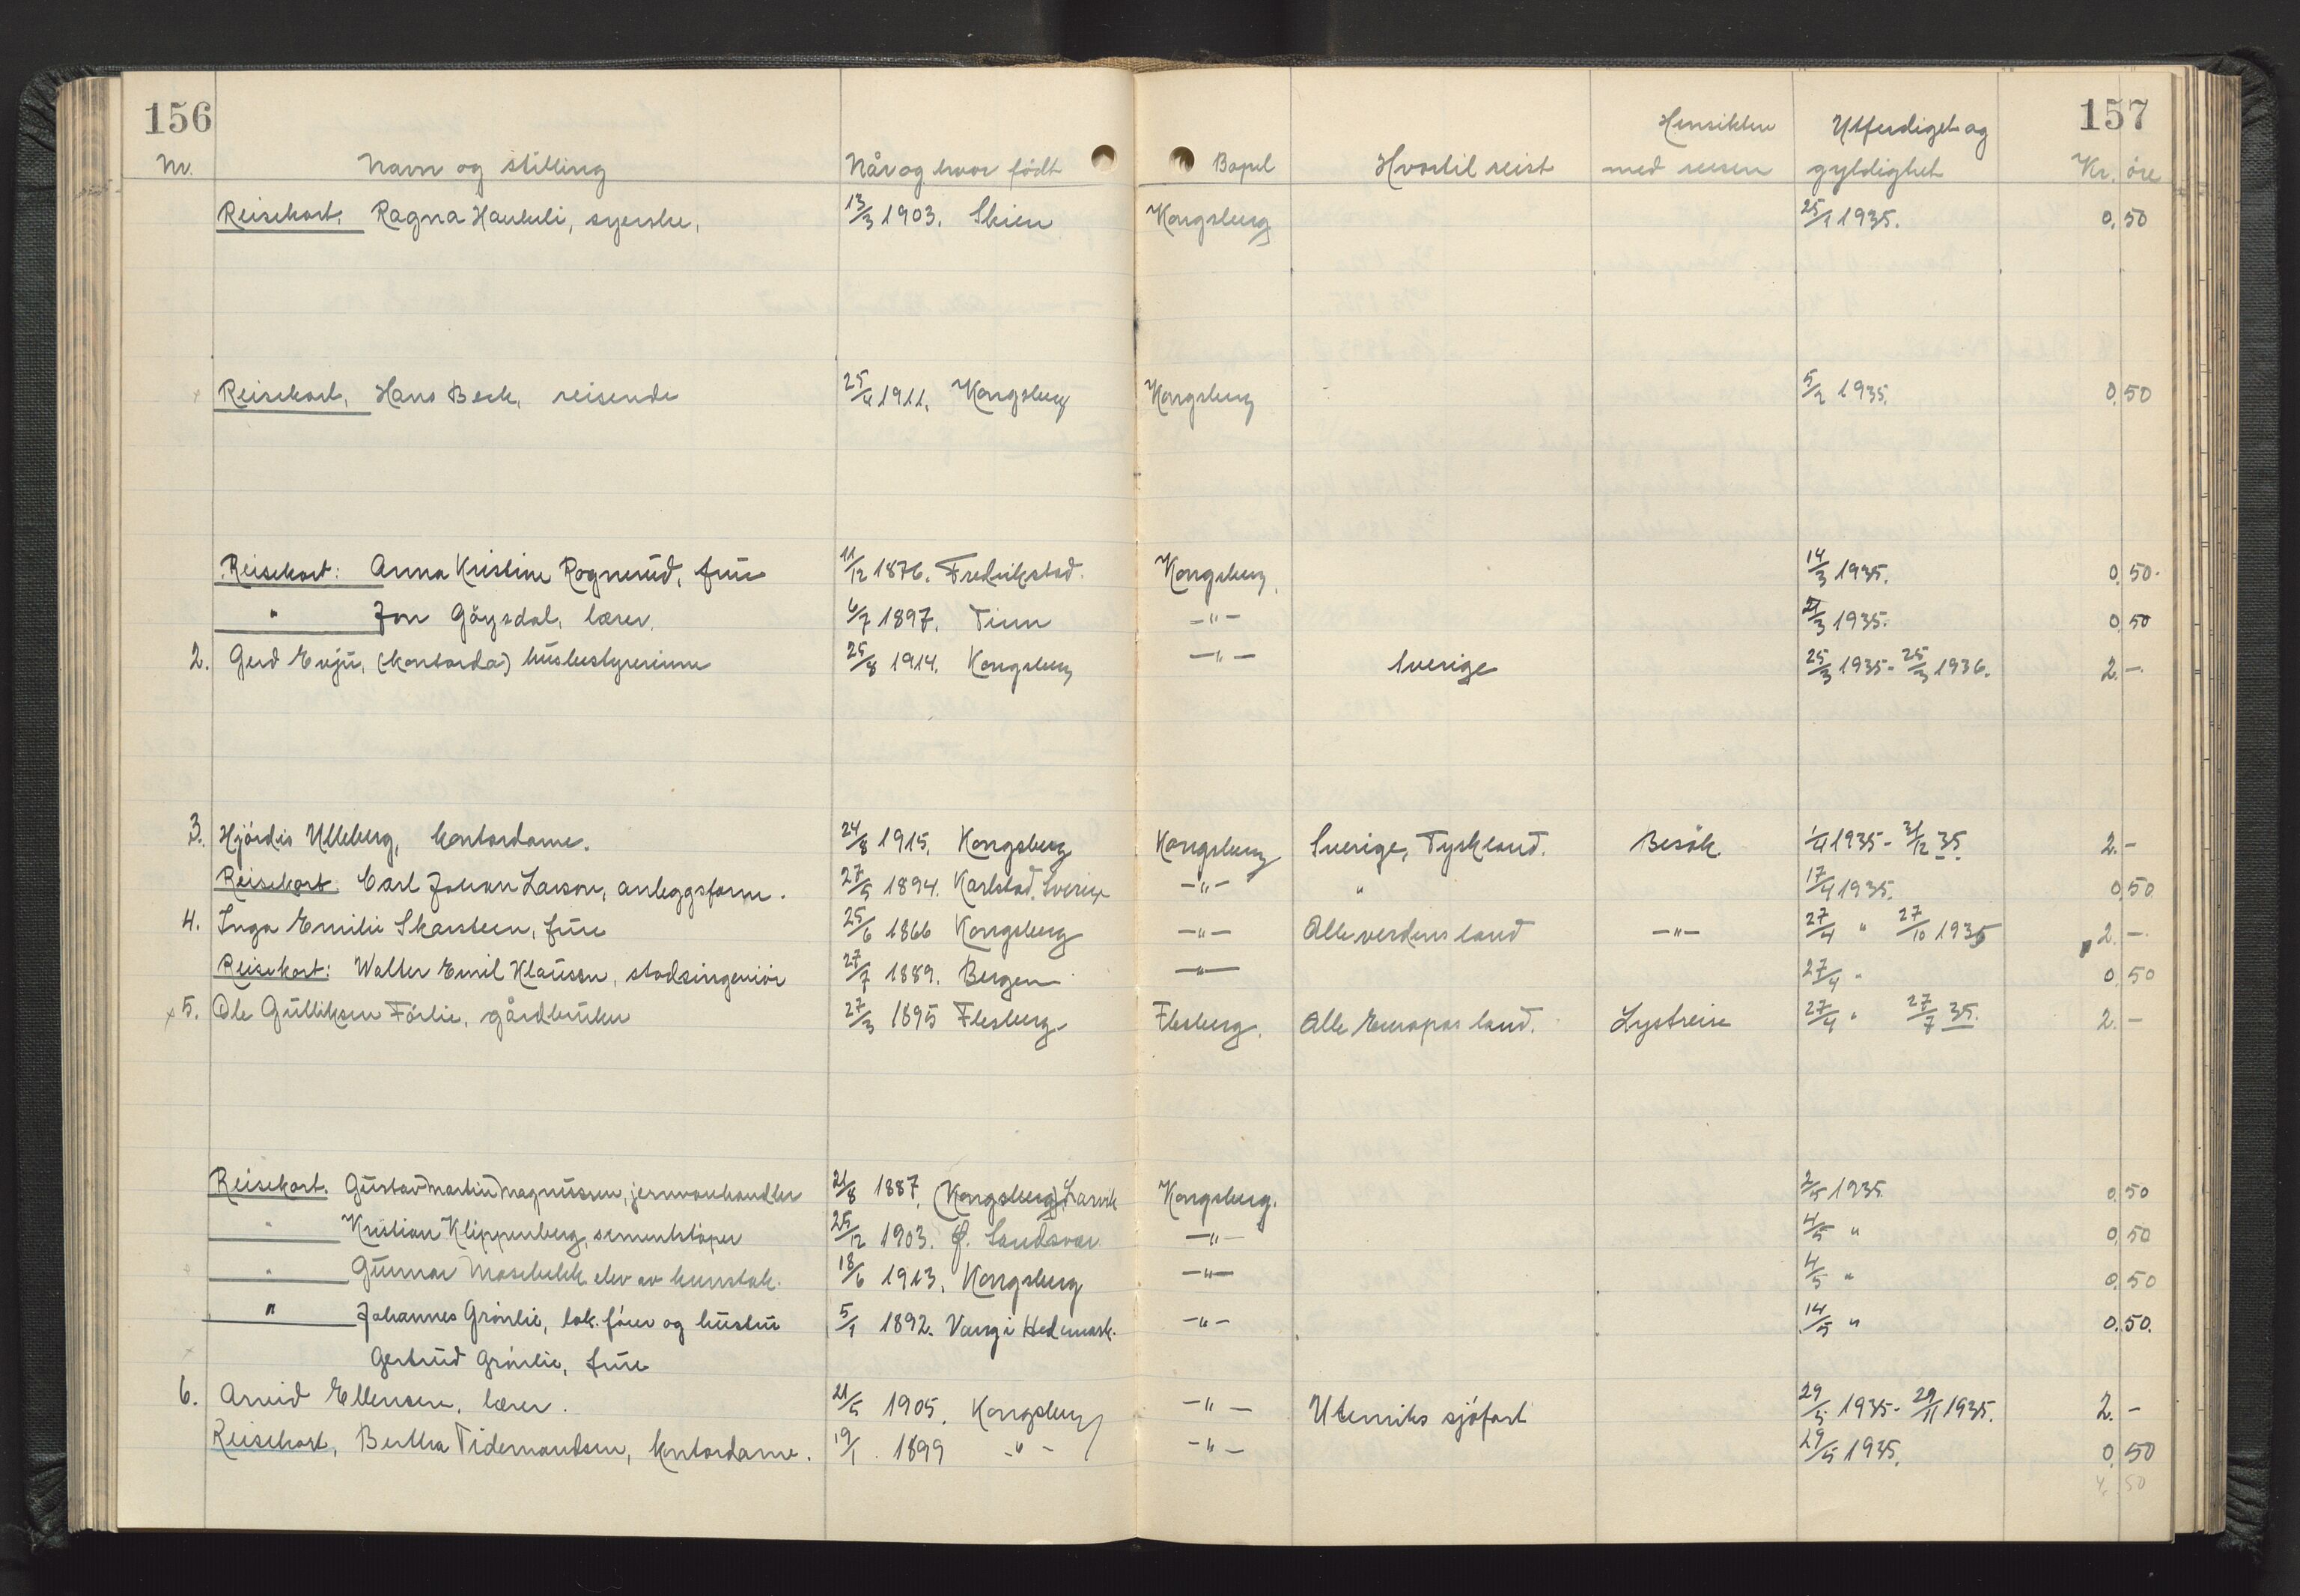 156 157
Hensikten Utferdiget og
Nr. Navn og stilling Når og hvor født Bopel Hvortil reist med reisen gyldighet Kr. øre
Reisekort. Ragna Haukeli, syerske, 13/3 1903. Skien Kongsberg 25/1 1935. 0,50
Reisekort, Hans Beck, reisende 25/4 1911, Kongsberg Kongsberg 5/2 1935. 0,50
Reisekort: Anna Kristine Rognerud, frue 11/12 1876. Fredrikstad. Kongsberg. 14/3 1935. 0,50.
" Jon Göysdal, lærer. 6/7 1897. Tinn -"- 21/3 1935. 0,50
2. Gerd Evju, (kontorda) husbestyrerinne 25/8 1914. Kongsberg -"- Sverige 25/3 1935 - 25/3 1936. 2.-
3. Hjördis Ulleberg, kontordame. 24/8 1915. Kongsberg Kongsberg Sverige, Tyskland. Besök. 1/4 1935 - 31/12 35. 2.-
Reisekort. Carl Johan Larson, anleggsform. 27/5 1894. Karlstad. Sverige -"- " 17/4 1935. 0,50
4. Inga Emilie Skarsteen, frue 25/6 1866 Kongsberg -"- Alle verdens land -"- 27/4 " 27/10 1935 2.-
Reisekort: Walter Emil Klausen, stadsingeniör 27/7 1889. Bergen -"- 27/4 " 0,50
x 5. Ole Gulliksen Förlie, gårdbruker 27/3 1895 Flesberg Flesberg. Alle Europas land. Lystreise 27/4 " 27/7 35. 2.-
Reisekort. Gustav Martin Magnussen, jernvarehandler 21/8 1887. (Kongsberg) Larvik Kongsberg. 2/5 1935 0,50
" Kristian Klippenberg, sementstöper 25/12 1903. Ö. Sandsvær -"- 4/5 " 0,50
" Gunnar elev av kunstak. 18/6 1913. Kongsberg -"- 4/5 " 0,50
" Johannes Grönlie, lok. förer og hustru 5/1 1892. Vang i Hedemark. -"- 14/5 " 0.50.
Gertrud Grönlie, frue
6. Arvid Ellensen, lærer. 21/5 1905. Kongsberg -"- Utenriks sjöfart 29/5 1935 - 29/11 1935. 2.-
Reisekort, Bertha Tidemandsen, kontordame. 19/1 1899 -"- -"- 29/5 1935. 0,50
4.50